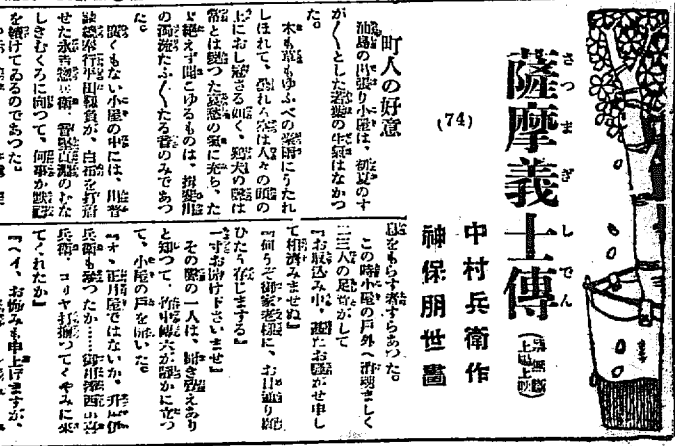 薩摩義士傳
さつまぎしでん
(禁無斷上演上映)
(74)
中村兵衛作
神保朋世畫
町人の好意
油島の出張り小屋は、初夏のす
が〱とした若葉の生氣はなかつ
た。
木も草もゆふべの豪雨にうたれ
しほれて、曇れる空は人々の頭の
上におし冠さる如く、鶏犬の聲は
常とは變つた哀愁の氣に充ち、た
ゞ絶えず聞ゆるものは、揖斐川
の濁流たふ〱たる音のみであつ
た。
廣くもない小屋の中には、川普
請總奉行平田靱負が、白布を打着
せた永吉惣兵衛、貞淵のむな
しきむくろに向つて、何事か默祷
を續けてゐるのであつた。
息をもらす者すらあつた。
この時小屋の戸外へ消魂ましく
二三人の足音がして
『お取込み中、甚だお騒がせ申し
て相濟みませぬ』
『何うぞ御家老樣に、お目通り願
ひたう存じまする』
『一寸お開け下さいませ』
その聲の一人は、聞き覺えあり
と知つて、竹中傳六が靜かに立つ
て、小屋の戸を開いた。
『オヽ正川屋ではないか、升屋伊
兵衛も參つたか……西の喜
兵衛、コリヤ打揃つてくやみに來
てくれたか』
『ヘイ、お悔みも申上げますが、